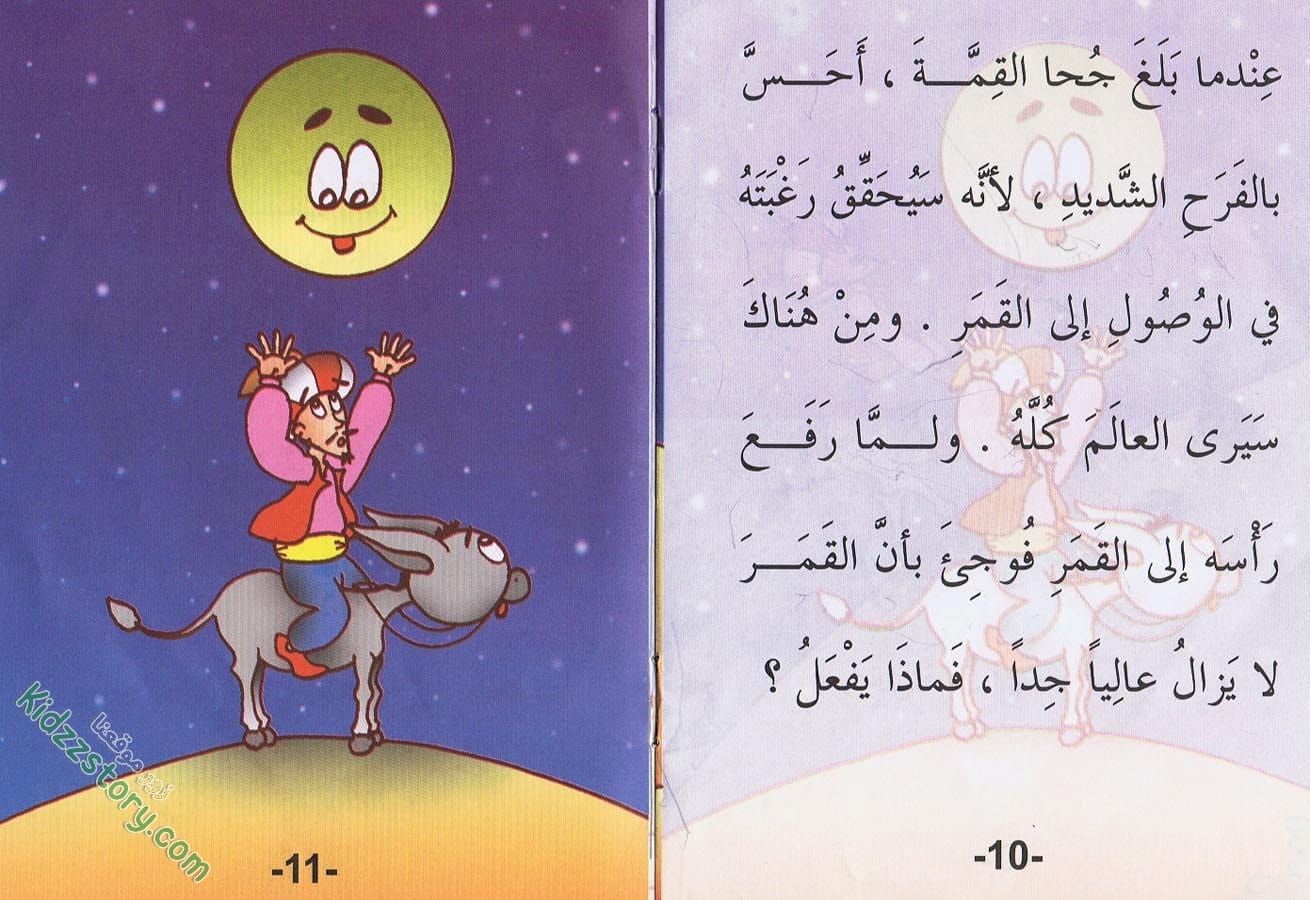 عِنْدما بَلَغَ جُحا القِمَّـــةَ ، أَحَـــسَّ
بالفَرَحِ الشَّديدِ ، لأنَّه سَيُحَقِّقُ رَغْبَتَهُ
في الوُصُولِ إلى القَمَرِ . ومِنْ هُنَاكَ
سَيَرى العالَمَ كُلَّهُ . ولـــمَّا رَفَـــعَ
رَأْسَه إلى القَمَرِ فُوجِئَ بأنَّ القَمَـــرَ
لا يَزالُ عالِياً جِداً ، فَماذَا يَفْعَلُ ؟
-10-
-11-
زوروا موقعنا
Kidzzstory.com